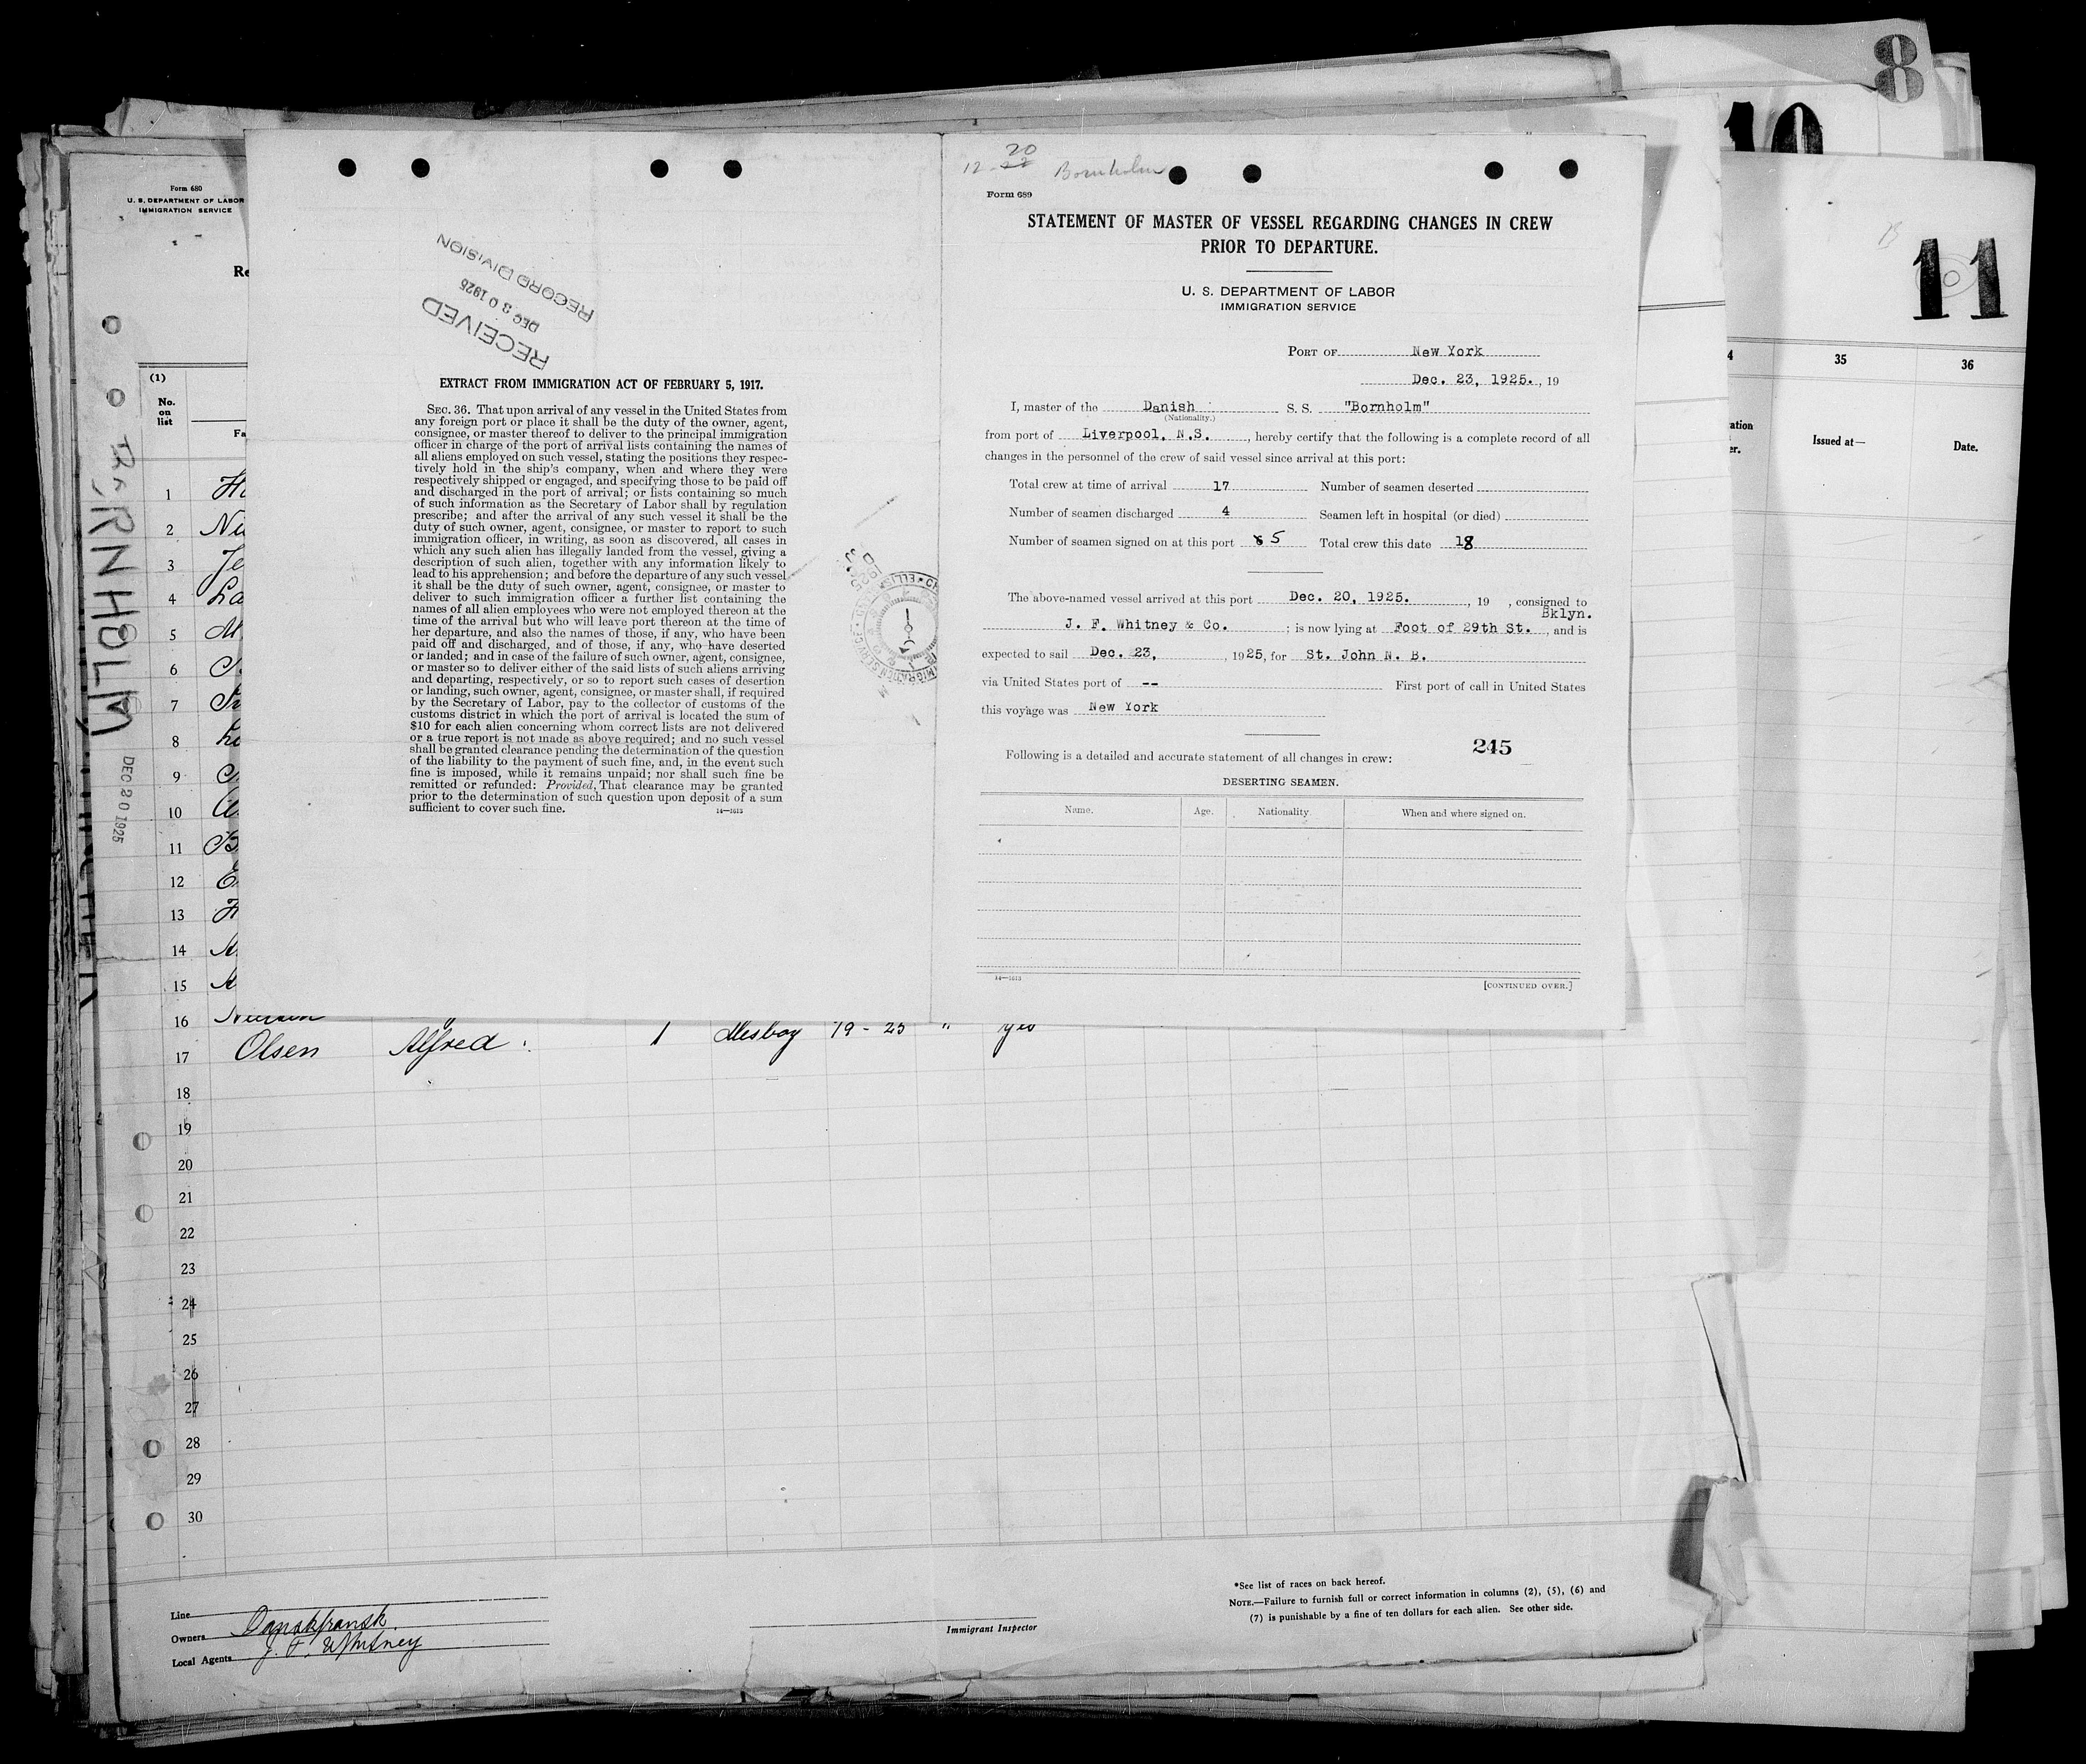 8
10
11
35
36
Issued at—
Date.
Form 680
U. S. DEPARTMENT OF LABOR
IMMIGRATION SERVICE
(1)
No.
on
list
BORNHOLM
DEC 20 1925
RECEIVED
DEC 30 1925
RECORD DIVISION
EXTRACT FROM IMMIGRATION ACT OF FEBRUARY 5, 1917.
SEC. 36. That upon arrival of any vessel in the United States from
any foreign port or place it shall be the duty of the owner, agent,
consignee, or master thereof to deliver to the principal immigration
officer in charge of the port of arrival lists containing the names of
all aliens employed on such vessel, stating the positions they respec-
tively hold in the ship's company, when and where they were
respectively shipped or engaged, and specifying those to be paid off
and discharged in the port of arrival; or lists containing so much
of such information as the Secretary of Labor shall by regulation
prescribe; and after the arrival of any such vessel it shall be the
duty of such owner, agent, consignee, or master to report to such
immigration officer, in writing, as soon as discovered, all cases in
which any such alien has illegally landed from the vessel, giving a
description of such alien, together with any information likely to
lead to his apprehension; and before the departure of any such vessel
it shall be the duty of such owner, agent, consignee, or master to
deliver to such immigration officer a further list containing the
names of all alien employees who were not employed thereon at the
time of the arrival but who will leave port thereon at the time of
her departure, and also the names of those, if any, who have been
paid off and discharged, and of those, if any, who have deserted
or landed; and in case of the failure of such owner, agent, consignee,
or master so to deliver either of the said lists of such aliens arriving
and departing, respectively, or so to report such cases of desertion
or landing, such owner, agent, consignee, or master shall, if required
by the Secretary of Labor, pay to the collector of customs of the
customs district in which the port of arrival is located the sum of
$10 for each alien concerning whom correct lists are not delivered
or a true report is not made as above required; and no such vessel
shall be granted clearance pending the determination of the question
of the liability to the payment of such fine, and, in the event such
fine is imposed, while it remains unpaid; nor shall such fine be
remitted or refunded: Provided, That clearance may be granted
prior to the determination of such question upon deposit of a sum
sufficient to cover such fine.
14—1613
12 - 20 Bornholm
Form 689
STATEMENT OF MASTER OF VESSEL REGARDING CHANGES IN CREW
PRIOR TO DEPARTURE.
U. S. DEPARTMENT OF LABOR
IMMIGRATION SERVICE
PORT OF New York
Dec. 23, 1925. , 19
I, master of the Danish S. S. "Bornholm"
(Nationality.)
from port of Liverpool, N.S. , hereby certify that the following is a complete record of all
changes in the personnel of the crew of said vessel since arrival at this port:
Total crew at time of arrival 17 Number of seamen deserted
Number of seamen discharged 4 Seamen left in hospital (or died)
Number of seamen signed on at this port 5 Total crew this date 18
The above-named vessel arrived at this port Dec. 20, 1925. , 19 , consigned to
Bklyn.
J. F. Whitney & Co. ; is now lying at Foot of 29th St. , and is
expected to sail Dec. 23, , 1925, for St. John N. B.
via United States port of -- First port of call in United States
this voyage was New York
245
Following is a detailed and accurate statement of all changes in crew:
DESERTING SEAMEN.
Name. Age. Nationality. When and where signed on.
14—1613
[CONTINUED OVER.]
1
2
3
4
5
6
7
8
9
10
11
12
13
14
15
16
17 Olsen Alfred 1 Messboy 19 - 25 " yes
18
19
20
21
22
23
24
25
26
27
28
29
30
Line
Owners Danskfransk
Local Agents J. F. Whitney
Immigrant Inspector
*See list of races on back hereof.
NOTE.—Failure to furnish full or correct information in columns (2), (5), (6) and
(7) is punishable by a fine of ten dollars for each alien. See other side.